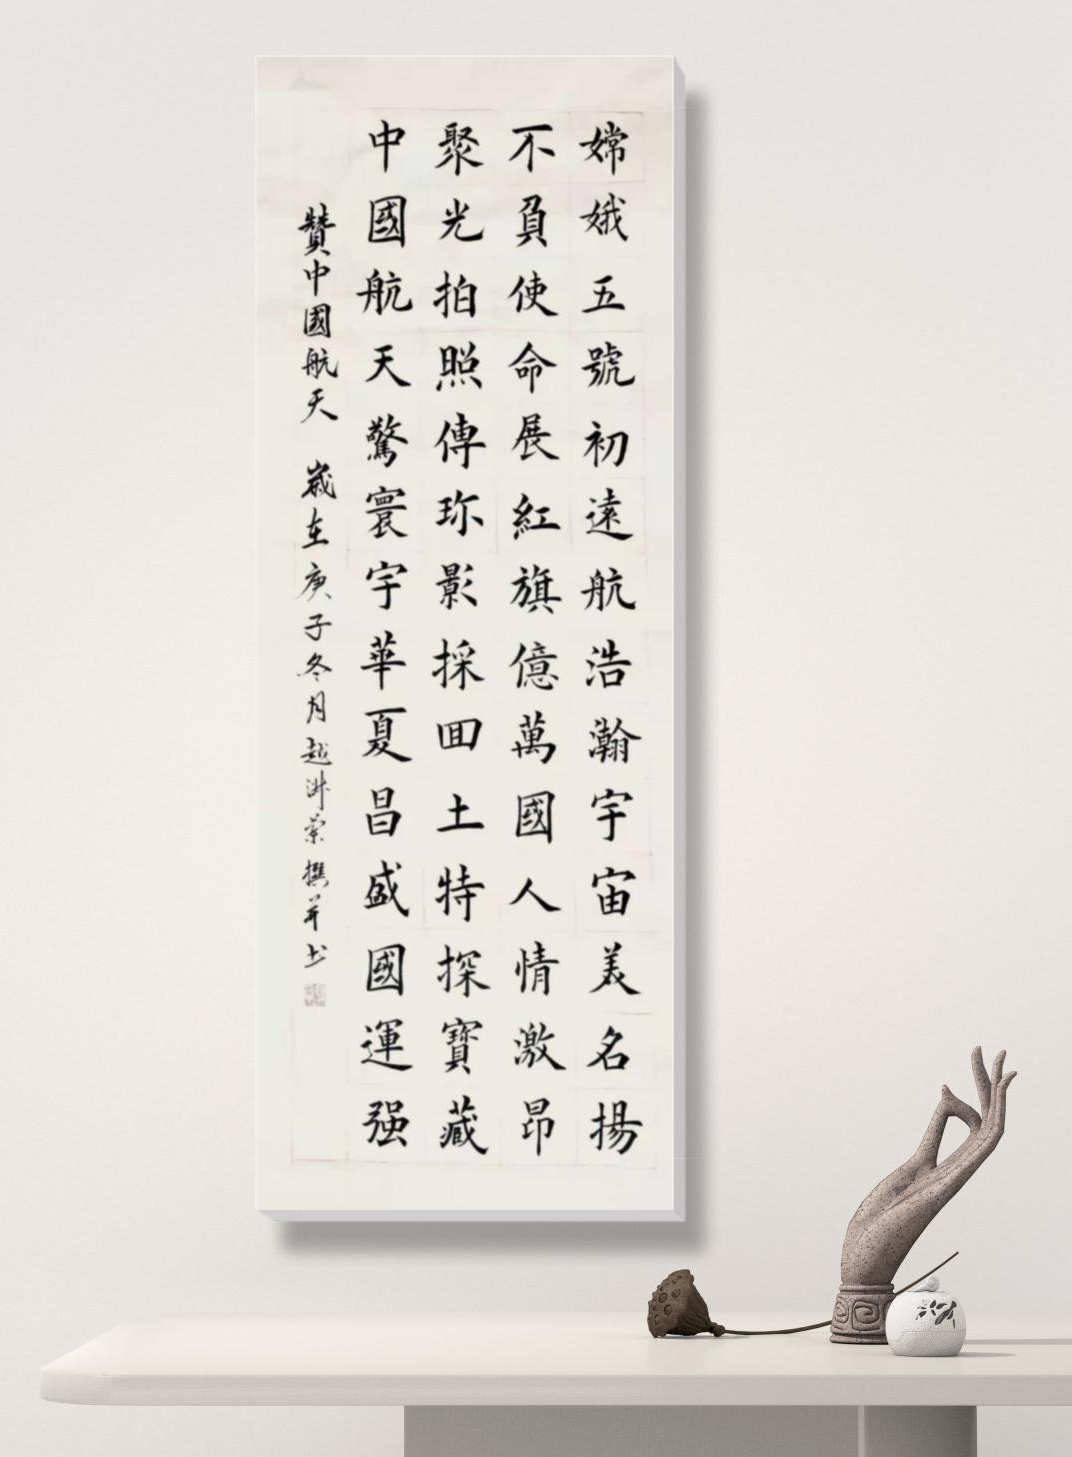 嫦娥五號初遠航浩瀚宇宙美名揚
不負使命展紅旗億萬國人情激昂
聚光拍照傳珎影採回土特探寶藏
中國航天驚寰宇華夏昌盛國運强
贊中國航天 嵗在庚子冬月越撰并书